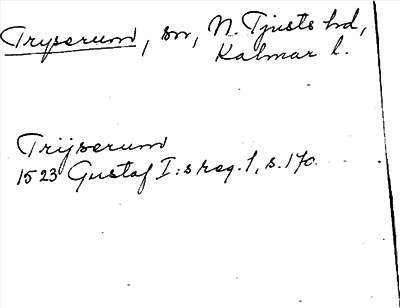 Tryserum, sn, N. Tjusts hd,
Kalmar l.
Trijserum
1523 Gustaf I:s reg. 1, s. 170.